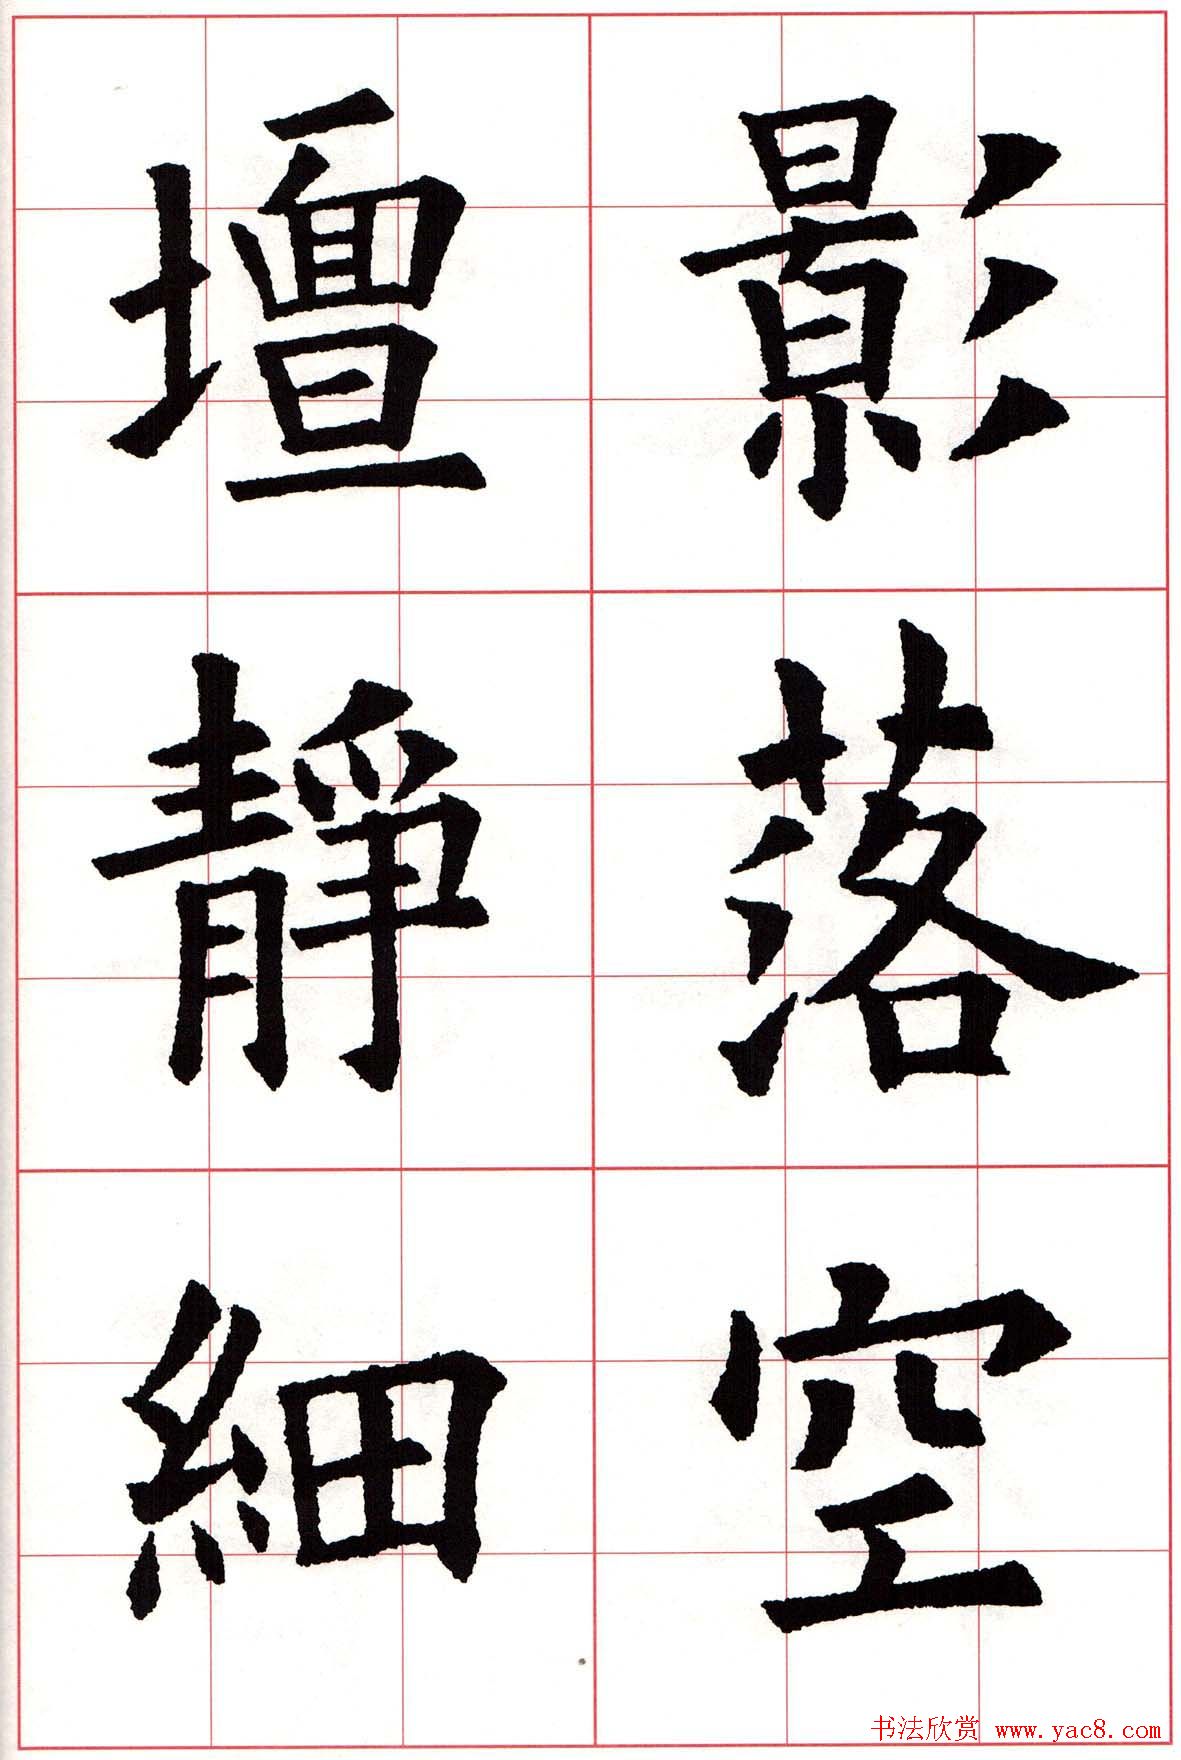 影落空
壇靜細
书法欣赏 www.yac8.com